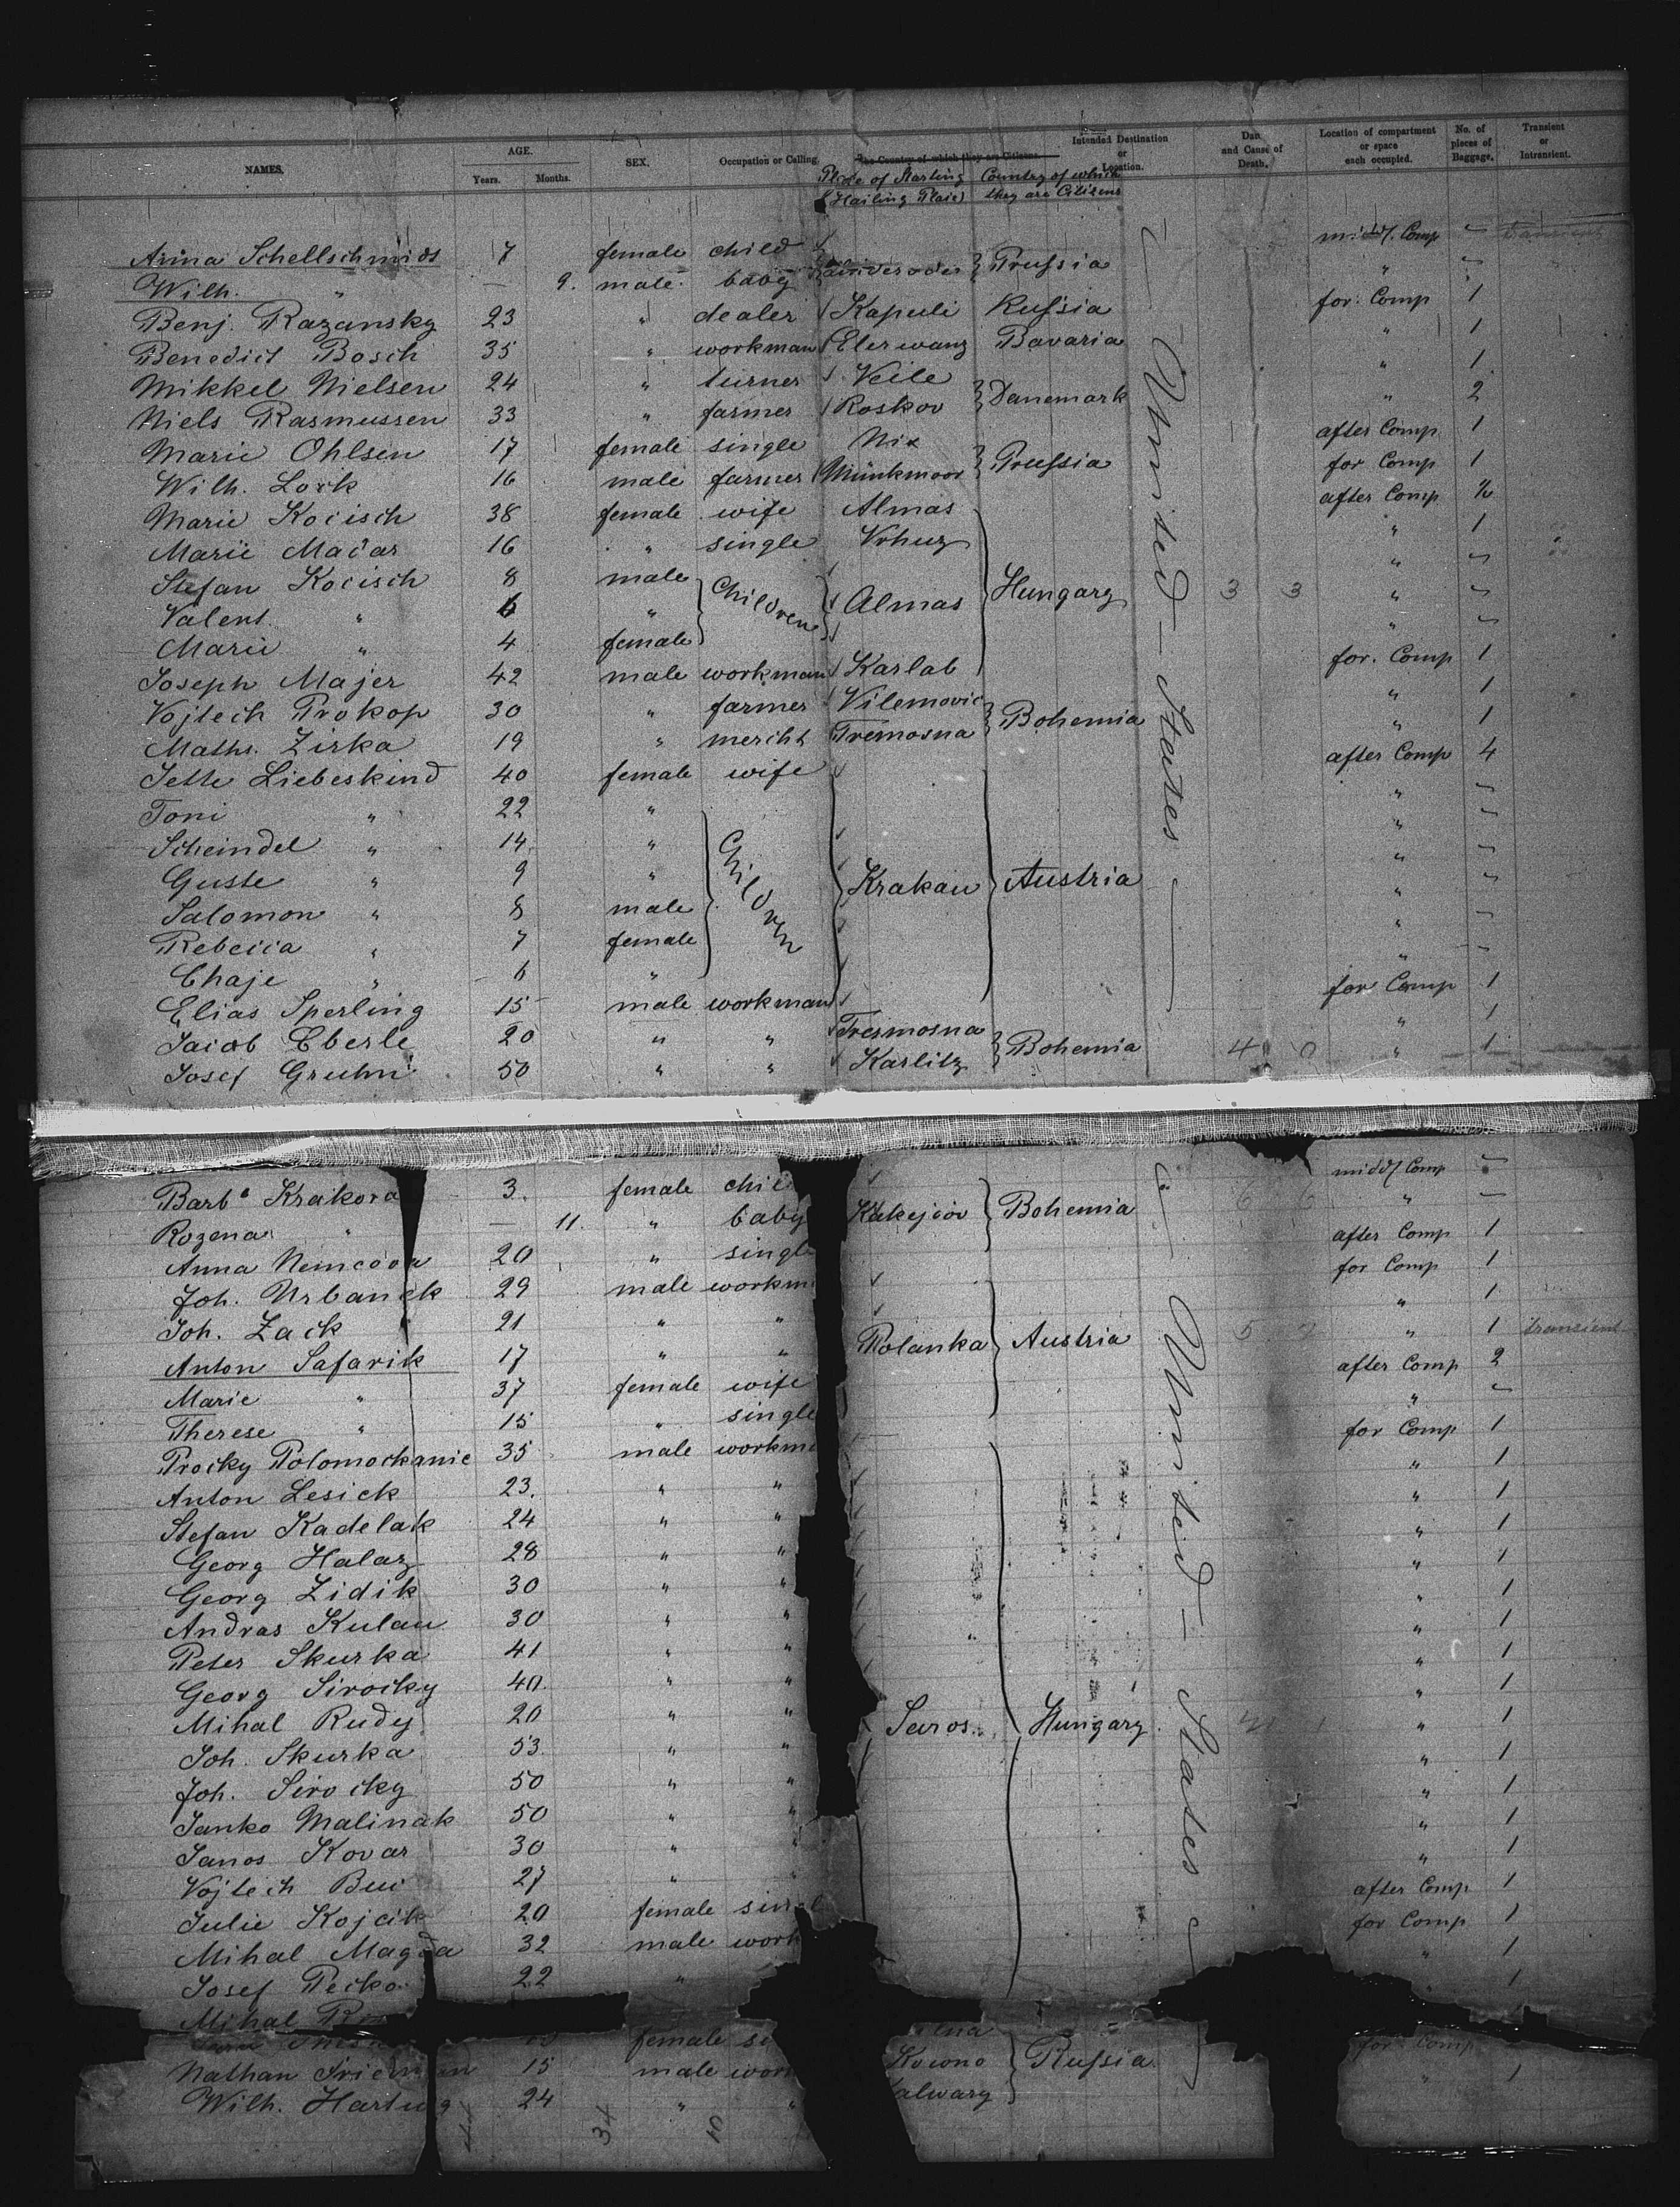 NAMES. AGE. Years. Months. SEX. Occupation or Calling. The Country of which they are Citizens. Intended Destination or Location. and Cause of Death. Location of compartment or space each occupied. No. of pieces of Baggage. Transient or Intransient.
Place of Starting (Hailing Place) Country of which they are Citizens
Anna Schellschmidt 7 female child Prussia midd. Comp transient
Wilh. " — 9. male baby "
Benj. Razansky 23 " dealer Kapuli Russia for. Comp 1
Benedict Bosch 35 " workman Elerwang Bavaria " 1
Mikkel Nielsen 24 " turner Veile Danemark " 1
Niels Rasmussen 33 " farmer Roskov " 2
Marie Ohlsen 17 female single Nix Prussia after Comp 1
Wilh. Lock 16 male farmer Münkmoor for Comp 1
Marie Kocisch 38 female wife Almas after Comp
Marie Macar 16 " single Vrhuz " 1
Stefan Kocisch 8 male Children Almas Hungary 3 3 "
Valent. " 6 " "
Marie " 4 female "
Joseph Majer 42 male workman Karlab for. Comp 1
Vojtech Prokop 30 " farmer Vilemovic Bohemia " 1
Maths. Zirka 19 " mercht Tremosna " 1
Jette Liebeskind 40 female wife Krakau Austria after Comp 4
Toni " 22 " Children "
Scheindel " 14 " "
Guste " 9 " "
Salomon " 8 male "
Rebecca " 7 female "
Chaje " 6 " "
Elias Sperling 15 male workman for Comp 1
Jacob Eberle 20 " " Tremosna Bohemia " 1
Josef Gruhn 50 " " Karlitz 4 0 " 1
United States
Barba Krakora 3. female midd. Comp
Rozena " — 11. " baby Bohemia 6 6 "
Anna Nemcova 20 " single after Comp 1
Joh. Urbanek 29 male for Comp 1
Joh. Zack 21 " " " 1
Anton Safarik 17 " " Polanka Austria 5 7 " 1 transient
Marie " 37 female wife after Comp 2
Therese " 15 " single "
Procky Polomockanic 35 male for Comp 1
Anton Lesick 23. " " " 1
Stefan Kadelak 24 " " " 1
Georg Halaz 28 " " " 1
Georg Zidik 30 " " " 1
Andras Kulan 30 " " " 1
Peter Skurka 41 " " " 1
Georg Sirocky 40 " " " 1
Mihal Rudy 20 " " Saros Hungary " 1
Joh. Skurka 53 " " " 1
Joh. Sirocky 50 " " " 1
Janko Malinak 50 " " " 1
Janos Kovar 30 " " 1
Vojtech Bui 27 " " 1
Julie Kojcik 20 female after Comp 1
Mihal Magda 32 male for Comp 1
Josef Pecko 22 " " 1
Mihal
female for Comp
Nathan 15 male Kowno Russia " 1
Wilh. Hartwig 24 "
United States
34 10